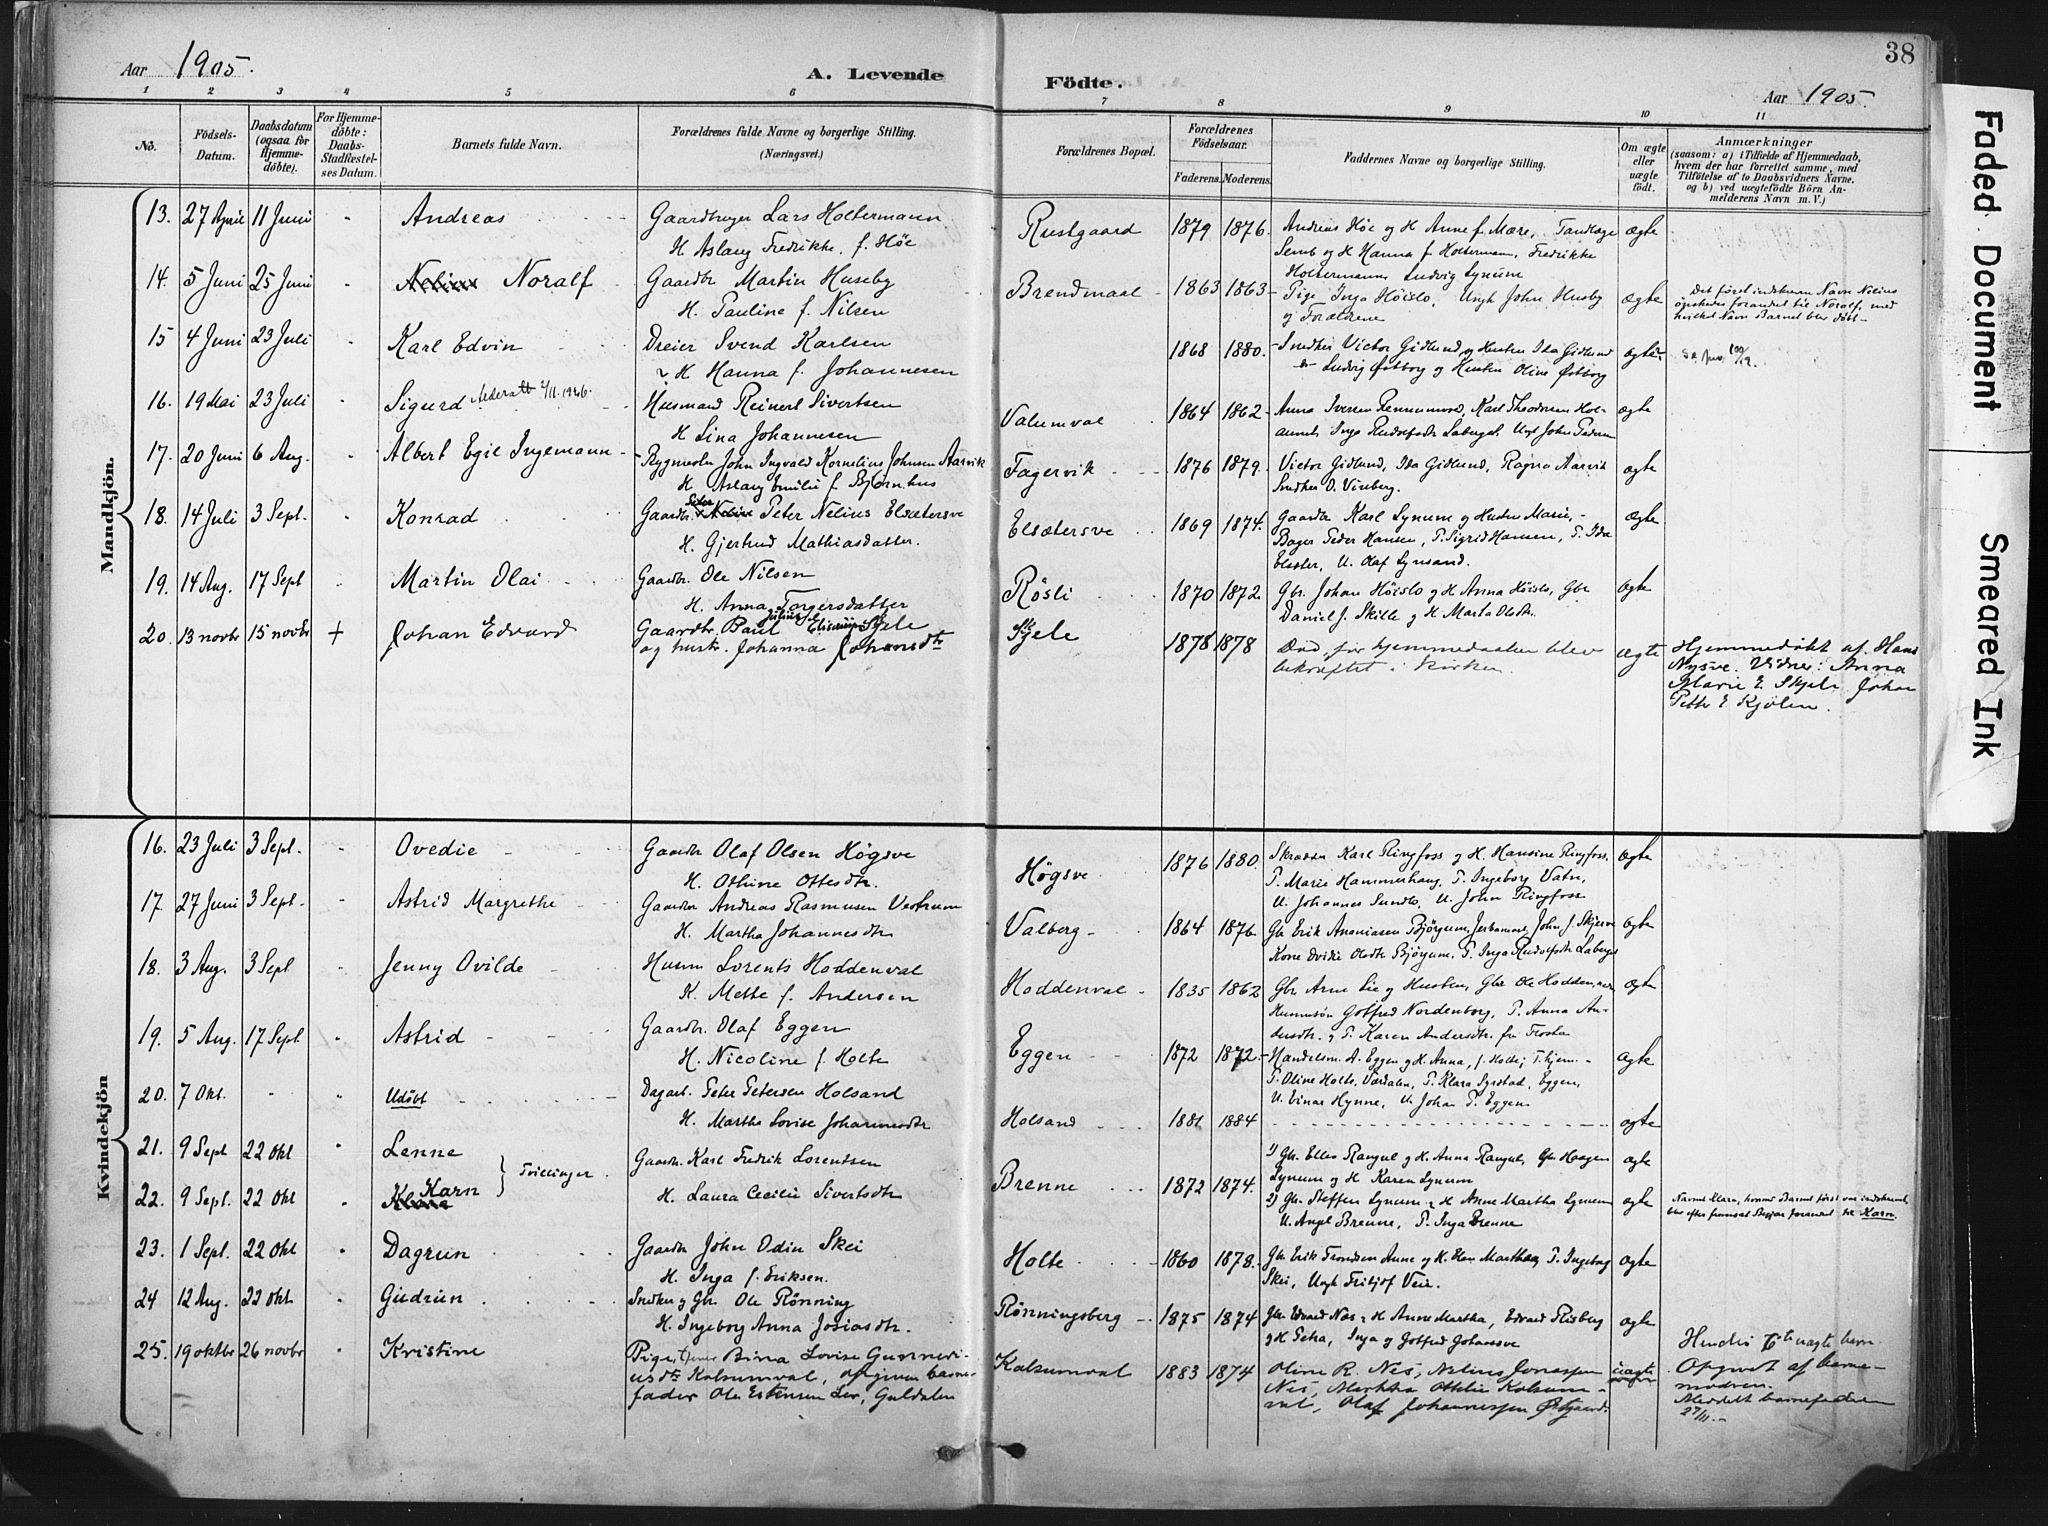 38
Aar 1905.
A. Levende Födte.
Aar 1905.
1 2 3 4 5 6 7 8 9 10 11
No.
Födsels-Datum.
Daabsdatum (ogsaa for Hjemmedøbte).
For Hjemmedøbte: Daabs-Stadfæstelses Datum.
Barnets fulde Navn.
Forældrenes fulde Navne og borgerlige Stilling. (Næringsvei.)
Forældrenes Bopæl.
Forældrenes Födselsaar.
Faderens. Moderens.
Faddernes Navne og borgerlige Stilling.
Om ægte eller uægte födt.
Anmærkninger
(saasom: a) i Tilfælde af Hjemmedaab, hvem der har forrettet samme, med Tilföielse af to Daabsvidners Navne, og b) ved uægtefödte Börn Anmelderens Navn m. V.)
Mandkjön.
13. 27 April 11 Juni Andreas
Gaardbruger Lars Holtermann
H. Aslaug Fredrikke f. Höe
Rustgaard 1879 1876.
Andreas Höe og H Anne f. Mære, Tandlæge
Semb og H Hanna f Holtermann, Fredrikke
Holtermann Ludvig Lynum
ægte
14. 5 Juni 25 Juni Nelius Noralf
Gaardbr Martin Huseby
H. Pauline f. Nilsen
Brendmaal 1863 1863
Pige Inga Höislo, Ungk John Husby
og Forældrene
ægte
Det först indskrevne Navn Nelius
önskedes forandret til Noralf, med
hvilket Navn Barnet blev döbt
15 4 Juni 23 Juli Karl Edvin
Dreier Svend Karlsen
H Hanna f. Johannesen
1868 1880.
Snedker Victor Gidlund og Hustru Ida Gidlund
Ludvig Østborg og Hustru Oline Østborg
ægte
16. 19 Mai 23 Juli Sigurd
Husmand Reinert Sivertsen
H Lina Johannesen
Valumval 1864 1862
Anna Iversen Remmemund, Karl Theodorsen
Inga Rudolfsdtr Laberget, Ungk John Pedersen
ægte
17. 20 Juni 6 Aug. Albert Egil Ingemann
Bygmester John Ingvald Kornelius Johnsen Aarvik
H Aslaug Emilie f Bjørnhus
Fagervik 1876 1879.
Victor Gidlund, Ida Gidlund, Ragna Aarvik
Snedker O. Vinberg.
ægte
18. 14 Juli 3 Sept. Konrad
Gaardbr. Peter Nelius Elsætersve
H. Gjertrud Mathiasdatter.
Elsætersve 1869 1874.
Gaardbr Karl Lynum og Hustru Marie,
Bager Peder Hansen, P. Sigrid Hansen, P. Ida
Elseter, U. Olaf Lynsand.
ægte
19. 14 Aug. 17 Sept Martin Olai
Gaardbr. Ole Nilsen
H. Anna Torgersdatter
Rösli 1870 1872.
Gbr. Johan Höislo og H Anna Höislo, Gbr
Daniel J. Skille og H. Marta Olsdtr.
ægte
20. 13 novbr 15 novbr + Johan Edvard
Gaardbr. Paul Julius Eliseussen Skjele
og hustr. Johanna Johansdtr
Skjele 1878 1878
Død, før hjemmedaaben blev
bekræftet i kirken.
ægte
Hjemmedøbt af Hans
Nysve. Vidner: Anna
Marie E. Skjele Johan
Petter E Kjølen.
Kvindekjön
16. 23 Juli 3 Sept. Ovedie
Gaardbr Olaf Olsen Högsve
H. Othine Ottesdtr.
Högsve 1876 1880.
Skrædder Karl Ringfoss og H. Hansine Ringfoss,
P. Marie Hammerhaug, P. Ingeborg Vatn,
U. Johannes Sundlo, U. John Ringfoss
ægte
17. 27 Juni 3 Sept. Astrid Margrethe
Gaardbr Andreas Rasmusen Vestrum
H. Martha Johannesdtr
Valberg 1864 1876.
Gbr Erik Ananiassen Bjørgum, John J. Skjerve
Kone Ovidie Olsdtr Bjørgum, P. Inga Rudolfsdtr Laberget
ægte
18. 3 Aug. 3 Sept Jenny Ovilde
Husm Lorents Hoddenval
K. Mette f. Andersen
Hoddenval 1835 1862
Gbr Arne Lie og Hustru, Gbr Ole Hodden,
Husmsøn Gotfred Nordenborg, P. Anna An-
dersdtr. og P. Karen Andersdtr. fra Frosta
ægte
19. 5 Aug. 17 Sept Astrid
Gaardbr. Olaf Eggen
H. Nicoline f. Holte
Eggen 1872 1872
Handelsm. A. Eggen og H Anna, f. Holte;
P. Oline Holte, Værdalen, P. Klara Syrstad, Eggen,
U. Einar Hynne, U. Johan P. Eggen
ægte
20. 7 Okt. Udöbt
Dagarb. Peter Petersen Holsand
H. Martha Lovise Johannesdtr
Holsand 1881 1884
ægte
21. 9 Sept 22 Okt Lenne
22. 9 Sept. 22 Okt Klara Karn
Tvillinger
Gaardbr. Karl Fredrik Lorentsen
H. Laura Cecilie Sivertsdtr
Brenne 1872 1874.
1) Gbr. Elles Rangul og H Anna Rangul, Gbr Haagen
Lynum og H Karen Lynum
2) Gbr. Steffen Lynum og H Anne Martha Lynum
U. Angel Brenne, P. Inga Brenne
ægte
ægte
Navnet Klara, hvormed Barnet först var indskrevet
blev efter fremsat Begjær forandret til Karn.
23. 1 Sept. 22 Okt Dagrun
Gaardbr John Odin Skei
H. Inga f. Eriksen.
Holte 1860 1878.
Gbr Erik Trondsen Anne og H. Martha, P. Ingeborg
Skei, Ungk Fritjof Veie.
ægte
24 12 Aug. 22 Okt Gudrun
Snedker og Gbr. Ole Rönning
H. Ingeborg Anna Josiasdtr.
Rönningsberg 1875 1874
Gbr. Edvard Nes og H Anne Martha, Edvard Risberg
og H Petra, Inga og Gotfred Johansve
ægte
25. 19 oktbr 26 novbr Kristine
Pige, Bina Lovise Gunneri-
usdtr Kolsumval, opgiven barne-
fader Ole Estensen Ler, Guldalen
Kolsumval 1883 1874
Oline R. Nes, Nelius Jonassen
Nes, Martha Otelie Kolsum-
val, Olaf Johannessen Østgaard.
uægte
Hendes 6te uægte barn
Opgivet af barne-
modren.
Meddelt barnefaderen
27/11.
Faded Document Smeared Ink